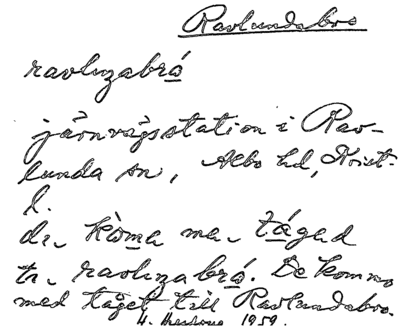 Ravlundabro
ravluzabró
järnvägsstation i Rav-
lunda sn, Albo hd, Krist.
l.
di kòma me tágad
te ravluzabró. De komma
med tåget till Ravlundabro.
1959.